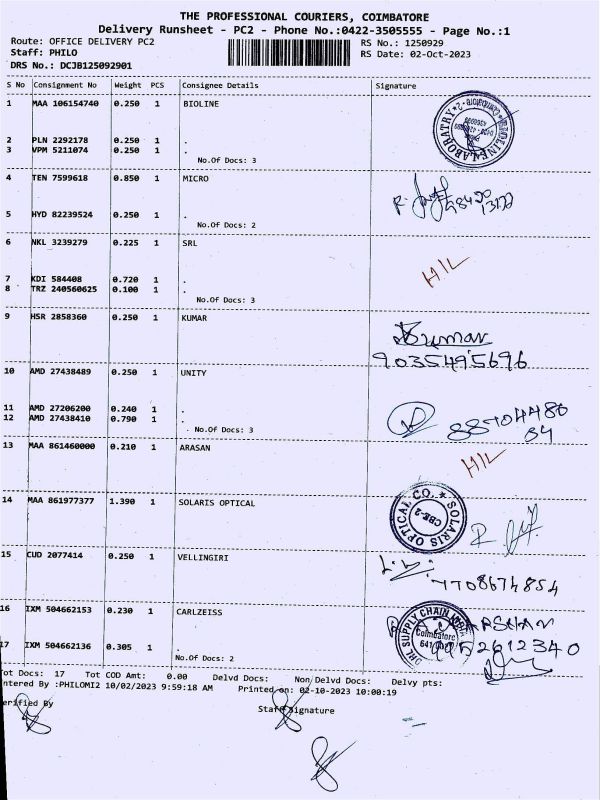 THE PROFESSIONAL COURIERS, COIMBATORE
Delivery Runsheet - PC2 - Phone No.:0422-3505555 - Page No.:1
Route: OFFICE DELIVERY PC2 RS No.: 1250929
Staff: PHILO RS Date: 02-Oct-2023
DRS No.: DCJB125092901
S No Consignment No Weight PCS Consignee Details Signature
1 MAA 106154740 0.250 1 BIOLINE
2 PLN 2292178 0.250 1 .
3 VPM 5211074 0.250 1 .
No.Of Docs: 3
4 TEN 7599618 0.850 1 MICRO
5 HYD 82239524 0.250 1 .
No.Of Docs: 2
6 NKL 3239279 0.225 1 SRL
HIL
7 KDI 584408 0.720 1 .
8 TRZ 240560625 0.100 1 .
No.Of Docs: 3
9 HSR 2858360 0.250 1 KUMAR
Kumar
9035495696
10 AMD 27438489 0.250 1 UNITY
11 AMD 27206200 0.240 1 .
12 AMD 27438410 0.790 1 .
No.Of Docs: 3
13 MAA 861460000 0.210 1 ARASAN
HIL
14 MAA 861977377 1.390 1 SOLARIS OPTICAL
SOLARIS OPTICAL CO.
CBE-2
15 CUD 2077414 0.250 1 VELLINGIRI
7708674854
16 IXM 504662153 0.230 1 CARLZEISS
DHL SUPPLY CHAIN
Coimbatore
17 IXM 504662136 0.305 1 .
No.Of Docs: 2
Tot Docs: 17 Tot COD Amt: 0.00 Delvd Docs: Non Delvd Docs: Delvy pts:
ntered By :PHILOMI2 10/02/2023 9:59:18 AM Printed on: 02-10-2023 10:00:19
erified By Staff Signature